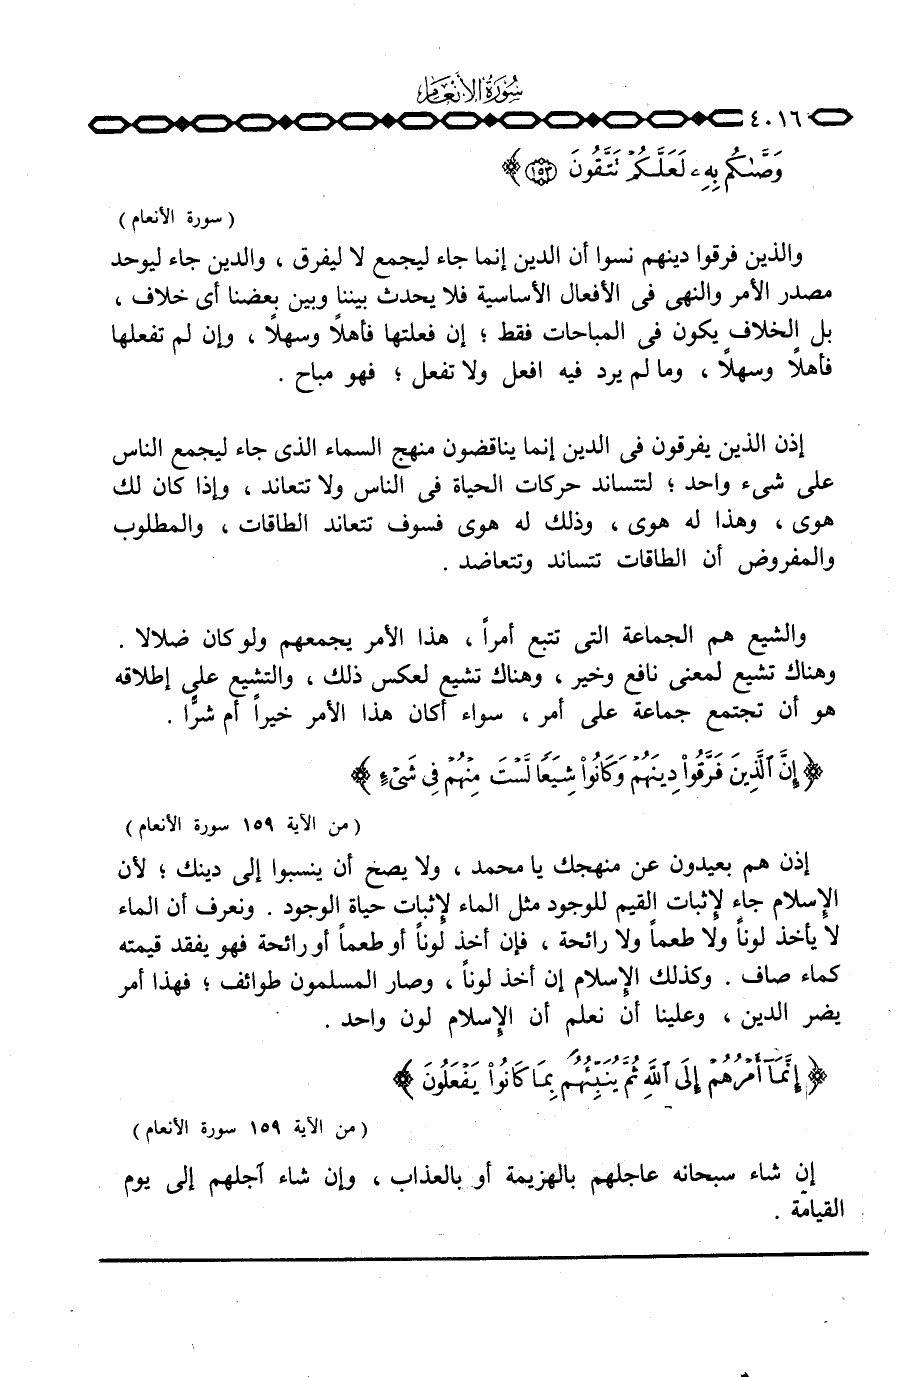 سورة الأنعام
٤٠١٦
وَصَّىٰكُم بِهِۦ لَعَلَّكُمْ تَتَّقُونَ ١٥٣ ﴾
( سورة الأنعام )
والذين فرقوا دينهم نسوا أن الدين إنما جاء ليجمع لا ليفرق ، والدين جاء ليوحد
مصدر الأمر والنهى فى الأفعال الأساسية فلا يحدث بيننا وبين بعضنا أى خلاف ،
بل الخلاف يكون فى المباحات فقط ؛ إن فعلتها فأهلاً وسهلاً ، وإن لم تفعلها
فأهلاً وسهلاً ، وما لم يرد فيه افعل ولا تفعل ؛ فهو مباح .
إذن الذين يفرقون فى الدين إنما يناقضون منهج السماء الذى جاء ليجمع الناس
على شىء واحد ؛ لتتساند حركات الحياة فى الناس ولا تتعاند ، وإذا كان لك
هوى ، وهذا له هوى ، وذلك له هوى فسوف تتعاند الطاقات ، والمطلوب
والمفروض أن الطاقات تتساند وتتعاضد .
والشيع هم الجماعة التى تتبع أمراً ، هذا الأمر يجمعهم ولو كان ضلالا .
وهناك تشيع لمعنى نافع وخير ، وهناك تشيع لعكس ذلك ، والتشيع على إطلاقه
هو أن تجتمع جماعة على أمر ، سواء أكان هذا الأمر خيراً أم شرًّا .
﴿ إِنَّ ٱلَّذِينَ فَرَّقُوا۟ دِينَهُمْ وَكَانُوا۟ شِيَعًا لَّسْتَ مِنْهُمْ فِى شَىْءٍ ﴾
( من الآية ١٥٩ سورة الأنعام )
إذن هم بعيدون عن منهجك يا محمد ، ولا يصخ أن ينسبوا إلى دينك ؛ لأن
الإسلام جاء لإثبات القيم للوجود مثل الماء لإثبات حياة الوجود . ونعرف أن الماء
لا يأخذ لوناً ولا طعماً ولا رائحة ، فإن أخذ لوناً أو طعماً أو رائحة فهو يفقد قيمته
كماء صاف . وكذلك الإسلام إن أخذ لوناً ، وصار المسلمون طوائف ؛ فهذا أمر
يضر الدين ، وعلينا أن نعلم أن الإسلام لون واحد .
﴿ إِنَّمَآ أَمْرُهُمْ إِلَى ٱللَّهِ ثُمَّ يُنَبِّئُهُم بِمَا كَانُوا۟ يَفْعَلُونَ ﴾
( من الآية ١٥٩ سورة الأنعام )
إن شاء سبحانه عاجلهم بالهزيمة أو بالعذاب ، وإن شاء آجلهم إلى يوم
القيامة .